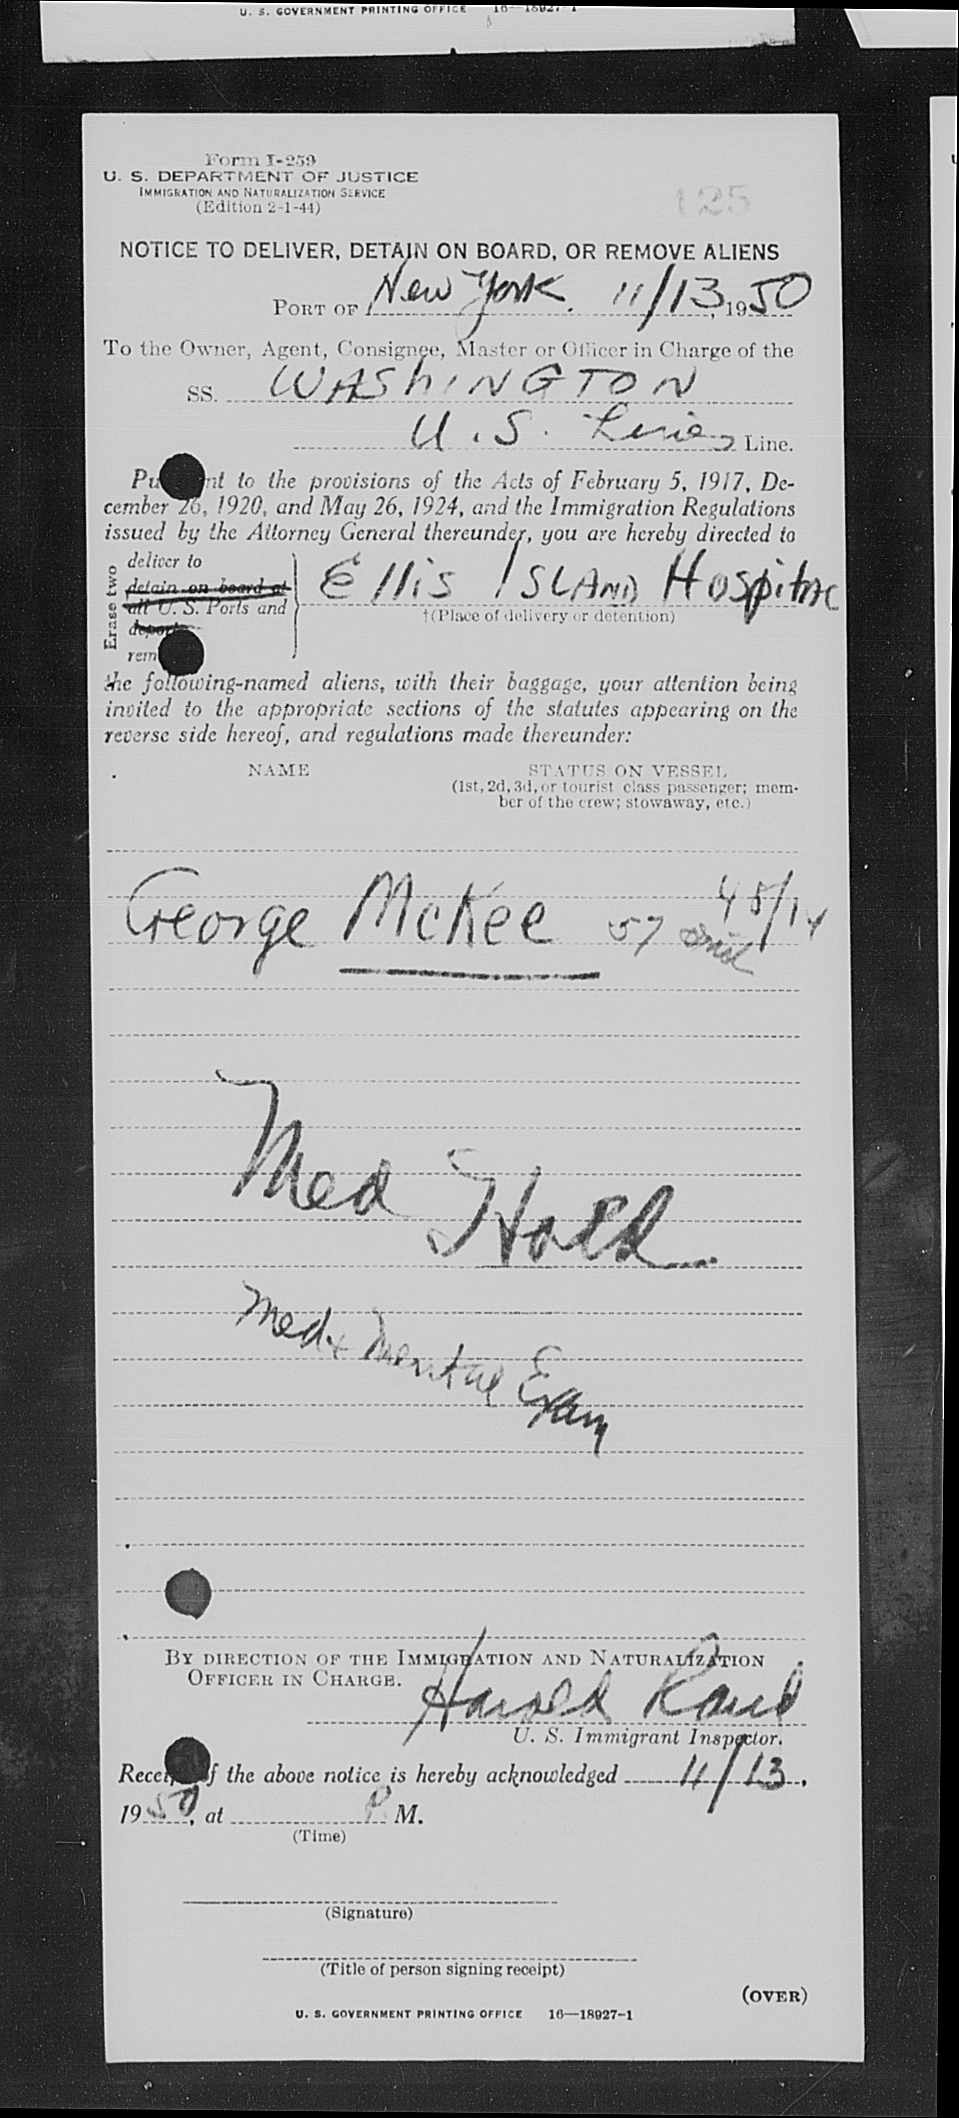 U. S. GOVERNMENT PRINTING OFFICE 16—18927-1
Form I-259
U. S. DEPARTMENT OF JUSTICE
IMMIGRATION AND NATURALIZATION SERVICE
(Edition 2-1-44)
125
NOTICE TO DELIVER, DETAIN ON BOARD, OR REMOVE ALIENS
PORT OF New York. 11/13, 1950
To the Owner, Agent, Consignee, Master or Officer in Charge of the
SS. WASHINGTON
U.S. Lines Line.
Pu nt to the provisions of the Acts of February 5, 1917, De-
cember 26, 1920, and May 26, 1924, and the Immigration Regulations
issued by the Attorney General thereunder, you are hereby directed to
Erase two
deliver to
detain on board at
all U. S. Ports and
deport
rem
Ellis ISLAND Hospital
†(Place of delivery or detention)
the following-named aliens, with their baggage, your attention being
invited to the appropriate sections of the statutes appearing on the
reverse side hereof, and regulations made thereunder:
NAME STATUS ON VESSEL
(1st, 2d, 3d, or tourist class passenger; mem-
ber of the crew; stowaway, etc.)
George McKee 57 45/14
Med Hold
Med + Mental Exam
BY DIRECTION OF THE IMMIGRATION AND NATURALIZATION
OFFICER IN CHARGE.
Harold
U. S. Immigrant Inspector.
Recei f the above notice is hereby acknowledged 11/13,
1950, at P. M.
(Time)
(Signature)
(Title of person signing receipt)
(OVER)
U. S. GOVERNMENT PRINTING OFFICE 16—18927-1